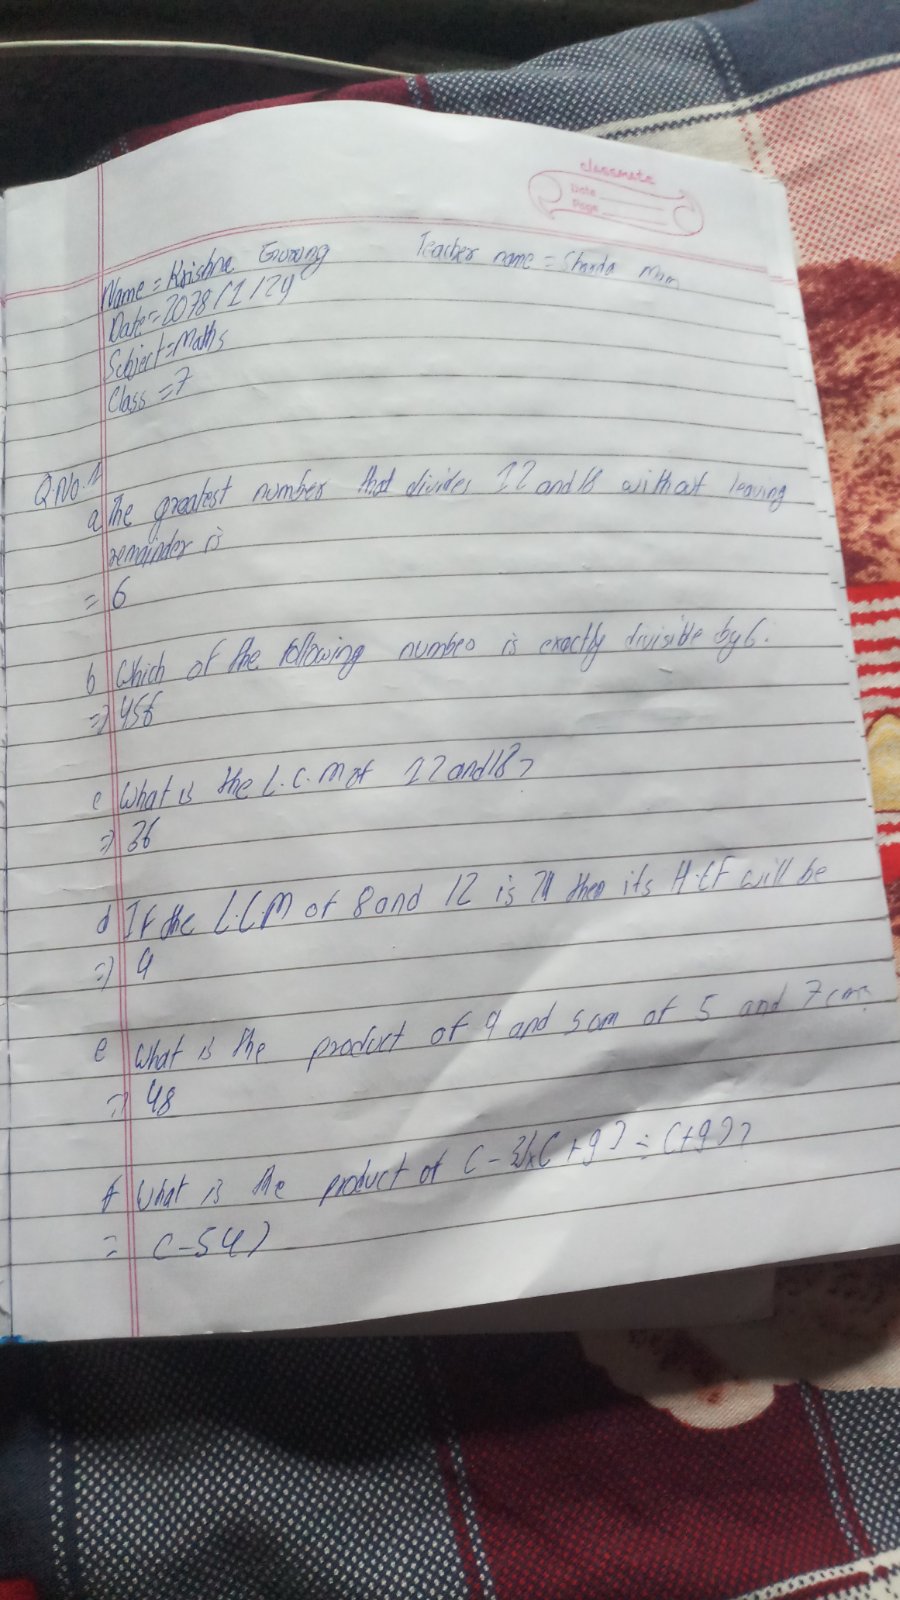 classmate
Date
Page
Name = Krishna Gurung Teacher name = Sharda Mam
Date = 2078/1/29
Subject = Maths
Class = 7
Q.No.1
a The greatest number that divides 12 and 18 without leaving
remainder is
= 6
b Which of the following number is exactly divisible by 6.
=> 456
c What is the L.C.M of 12 and 18?
=> 36
d If the L.C.M of 8 and 12 is 24 then its H.C.F will be
=> 4
e What is the product of 4 and sum of 5 and 7
=> 48
f What is the product of (+9) ÷ (+9)?
= (-54)